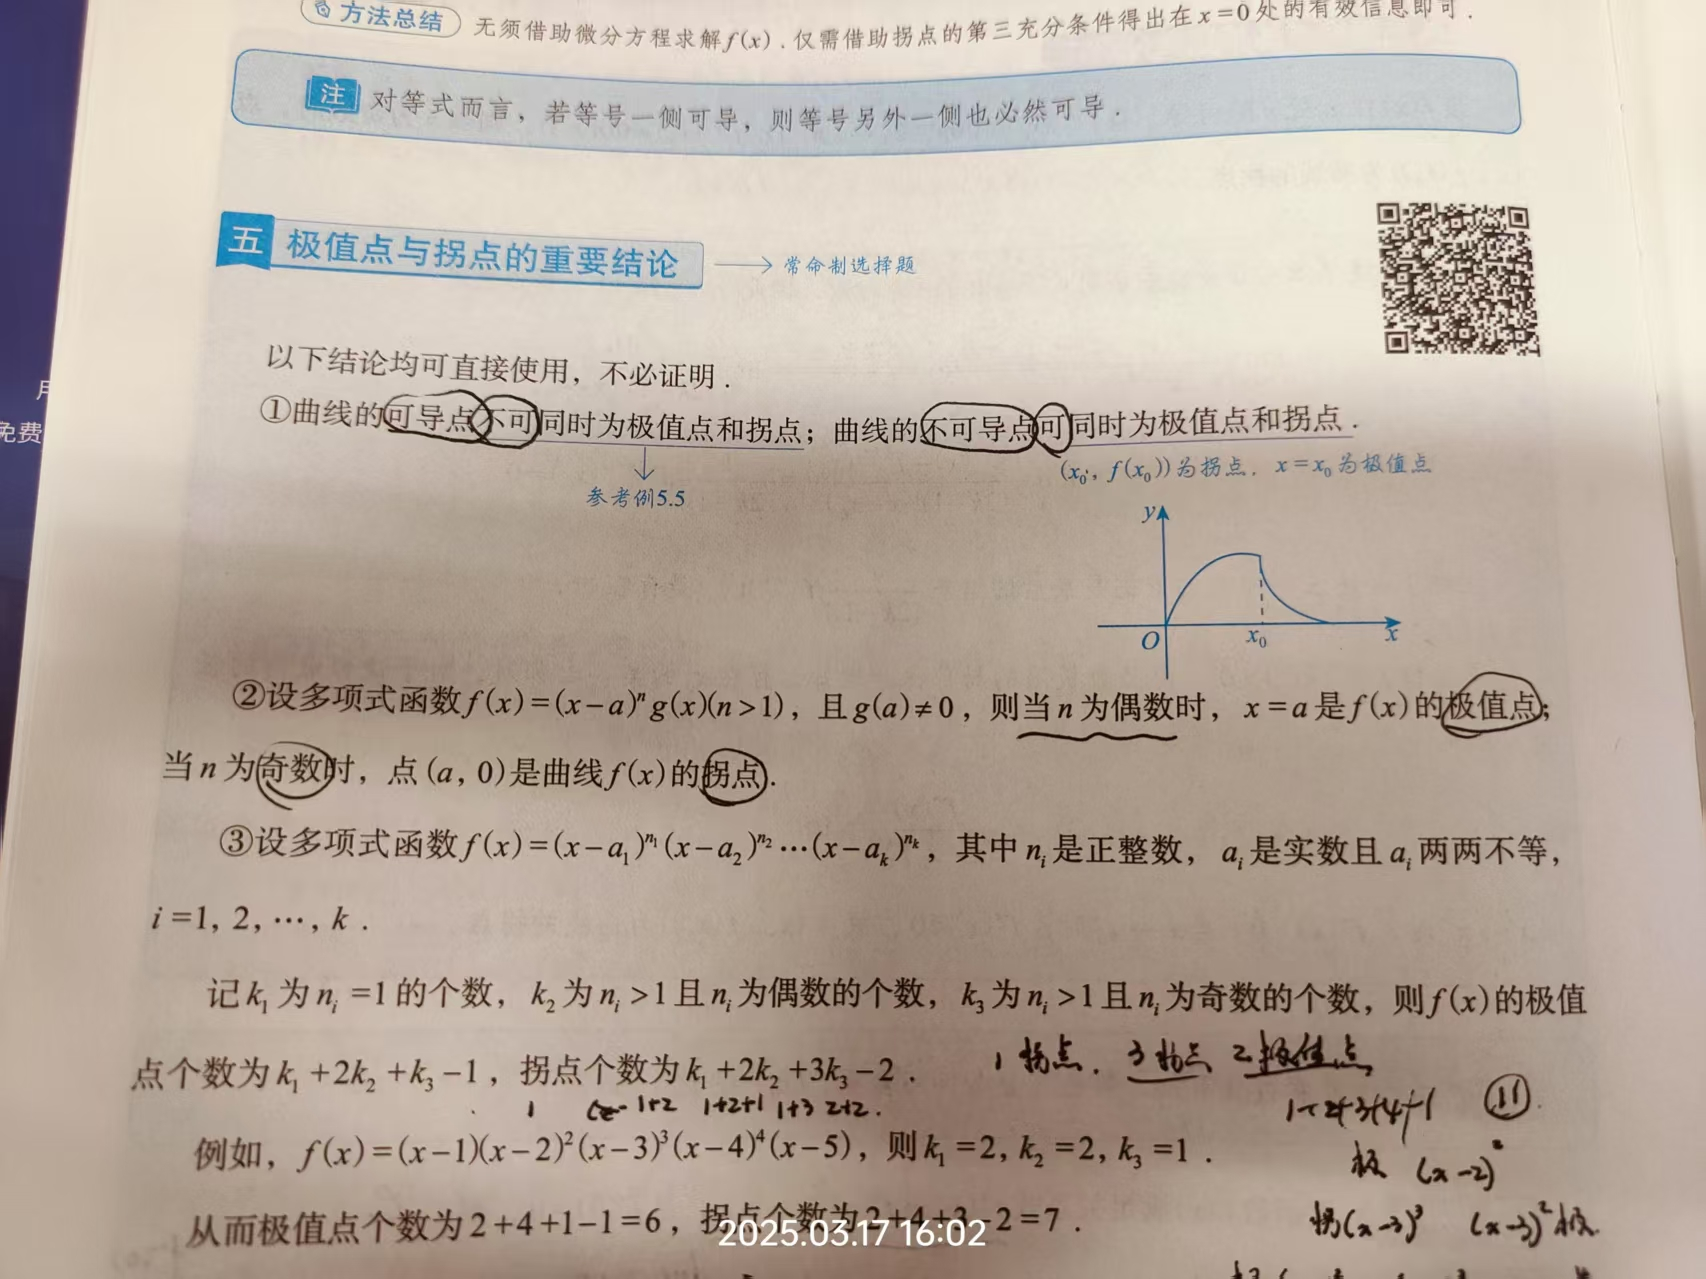 方法总结 无须借助微分方程求解f(x).仅需借助拐点的第三充分条件得出在x=0处的有效信息即可.
注 对等式而言，若等号一侧可导，则等号另外一侧也必然可导.
五 极值点与拐点的重要结论 → 常命制选择题
以下结论均可直接使用，不必证明.
免费
①曲线的可导点不可同时为极值点和拐点；曲线的不可导点可同时为极值点和拐点.
(x₀, f(x₀))为拐点. x=x₀为极值点
参考例5.5
y
O x₀ x
②设多项式函数f(x)=(x-a)ⁿg(x)(n>1)，且g(a)≠0，则当n为偶数时，x=a是f(x)的极值点；
当n为奇数时，点(a, 0)是曲线f(x)的拐点.
③设多项式函数f(x)=(x-a₁)^{n₁}(x-a₂)^{n₂}⋯(x-a_k)^{n_k}，其中n_i是正整数，a_i是实数且a_i两两不等，
i=1, 2, ⋯, k.
记k₁为n_i=1的个数，k₂为n_i>1且n_i为偶数的个数，k₃为n_i>1且n_i为奇数的个数，则f(x)的极值
点个数为k₁+2k₂+k₃-1，拐点个数为k₁+2k₂+3k₃-2. 1拐点. 3拐点 2极值点
1 1+2 1+2+1 1+3 2+2. 11
例如，f(x)=(x-1)(x-2)²(x-3)³(x-4)⁴(x-5)，则k₁=2, k₂=2, k₃=1.
极 (x-2)²
从而极值点个数为2+4+1-1=6，拐点个数为2+4+3-2=7. 拐(x-3)³ (x-3)²极.
2025.03.17 16:02